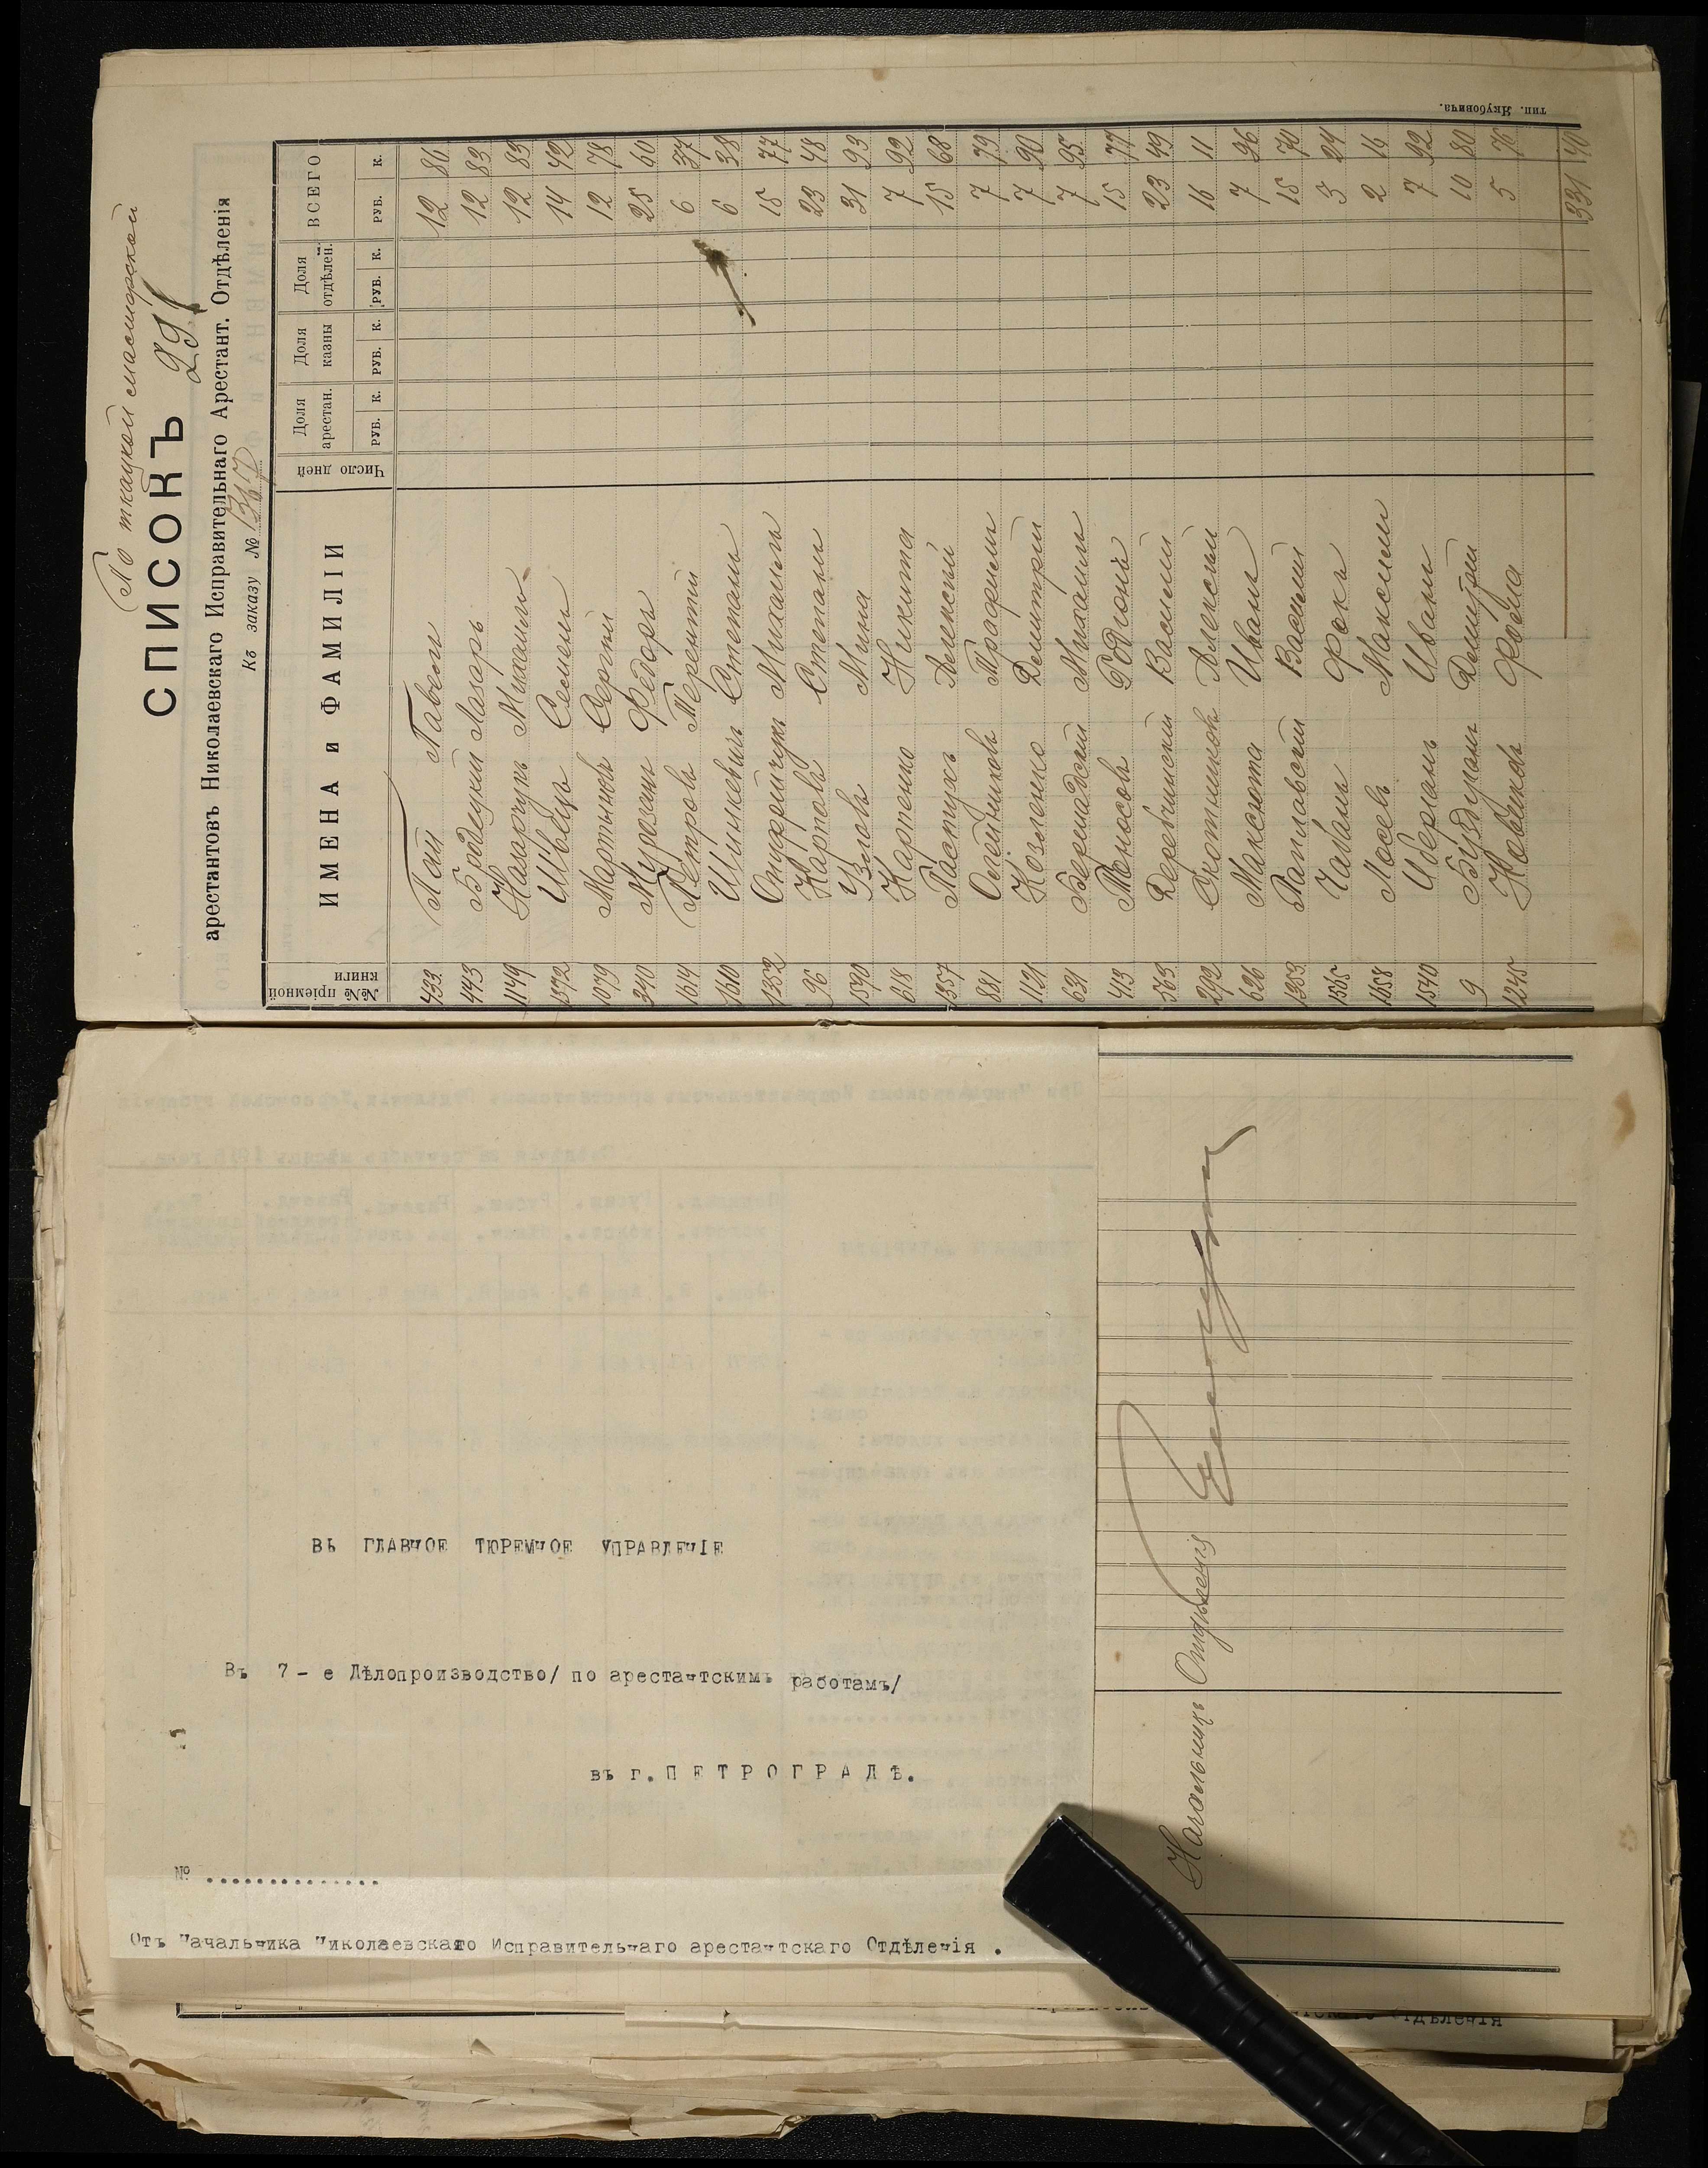 По ткацкой мастерской
СПИСОКЪ 291
арестантовъ Николаевскаго Исправительнаго Арестант. Отдѣленія
Къ заказу № 1367
№№ пріемной книги ИМЕНА и ФАМИЛІИ Число дней Доля арестан. Доля казны Доля отдѣлен. ВСЕГО
РУБ. К. РУБ. К. РУБ. К. РУБ. К.
433 Павелъ 12 86
443 Бродецкій Лазарь 12 83
1149 Назарчукъ Михаилъ 12 83
1572 Швецъ Семенъ 14 42
1079 Мартыновъ Сергѣй 12 78
340 Федоръ 25 60
1614 Петровъ Терентій 6 37
1610 Шинкевичъ Степанъ 6 38
1352 Онуфрійчукъ Михаилъ 15 77
96 Карповъ Степанъ 23 48
1590 Узловъ Мина 31 93
618 Карпенко Никита 7 92
1357 Пастухъ Алексѣй 15 68
881 Олейниковъ Трофимъ 7 79
1121 Козеленко Дмитрій 7 90
631 Бернадскій Михаилъ 7 95
413 Тоносовъ Родіонъ 15 77
563 Деревчинскій Василій 23 49
292 Скотниковъ Алексѣй 16 11
626 Максюта Иванъ 7 96
1353 Василій 15 70
1565 Чабанъ Фока 3 24
1658 Лосевъ Максимъ 2 16
1540 Иванъ 7 92
9 Буздуганъ Дмитрій 10 80
1245 Новиковъ 5 76
331 40
тип. Якубовича.
ВЪ ГЛАВНОЕ ТЮРЕМНОЕ УПРАВЛЕНІЕ
Въ 7 - е Дѣлопроизводство/ по арестантскимъ работамъ/
въ г. ПЕТРОГРАДѢ.
№ ..............
Отъ Начальника Николаевскаго Исправительнаго арестантскаго Отдѣленія .
Начальникъ Отдѣленія